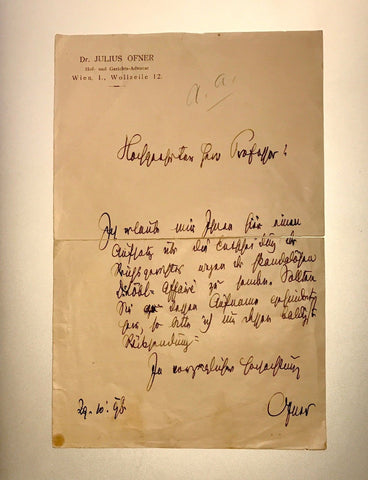 Dr. JULIUS OFNER
Hof- und Gerichts-Advocat
Wien, I., Wollzeile 12.
a. a.
Hochgeehrter Herr Professor!
Ich erlaube mir Ihnen hier einen
Aufsatz über die Entscheidung des
Reichsgerichtes wegen der skandalösen
Affaire zu senden. Sollten
Sie dessen Aufname
sein, so bitte ich um dessen
Rücksendung.
In vorzüglicher Hochachtung
29. 10. 98.
Ofner